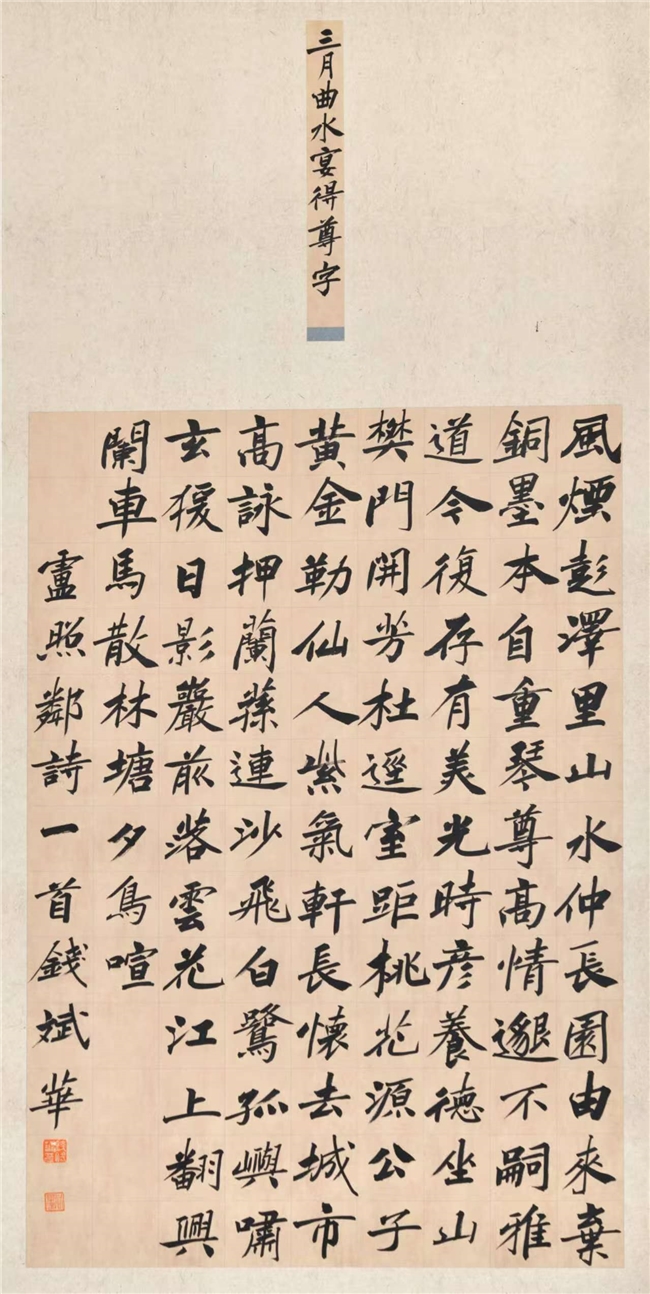 三月曲水宴得尊字
風煙彭澤里山水仲長園由來棄
銅墨本自重琴尊高情邈不嗣雅
道今復存有美光時彦養德坐山
樊門開芳杜逕室距桃花源公子
黃金勒仙人紫氣軒長懷去城市
高詠狎蘭蓀連沙飛白鷺孤嶼嘯
玄猨日影巖前落雲花江上翻興
闌車馬散林塘夕鳥喧
盧照鄰詩一首錢斌華